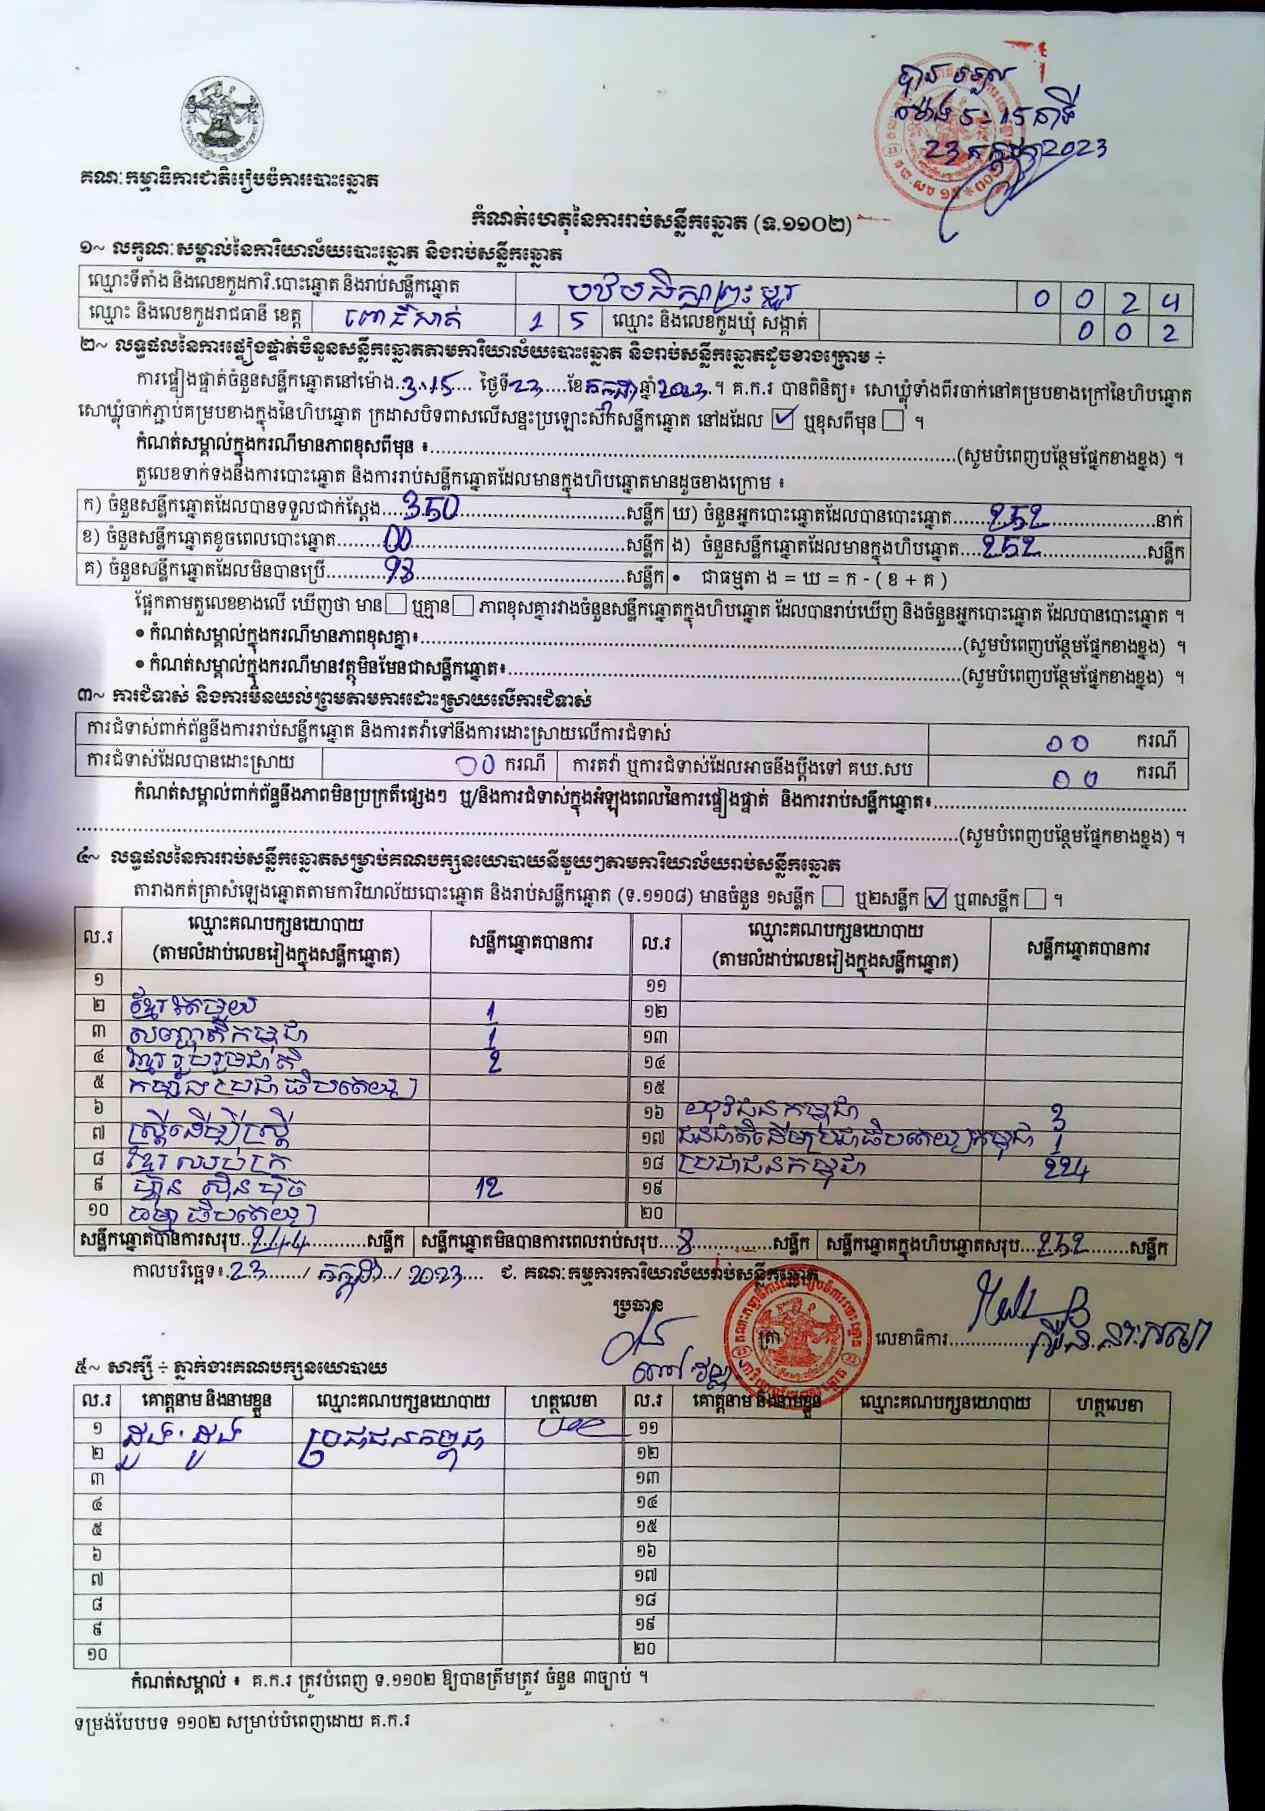 បានទទួល
ម៉ោង ៥:១៥នាទី
23 កក្កដា 2023
គណៈកម្មាធិការជាតិរៀបចំការបោះឆ្នោត
កំណត់ហេតុនៃការរាប់សន្លឹកឆ្នោត (ទ.១១០២)
១~ លក្ខណៈសម្គាល់នៃការិយាល័យបោះឆ្នោត និងរាប់សន្លឹកឆ្នោត
ឈ្មោះទីតាំង និងលេខកូដការិ.បោះឆ្នោត និងរាប់សន្លឹកឆ្នោត 0 0 2 4
ឈ្មោះ និងលេខកូដរាជធានី ខេត្ត ពោធិ៍សាត់ 1 5 ឈ្មោះ និងលេខកូដឃុំ សង្កាត់ 0 0 2
២~ លទ្ធផលនៃការផ្ទៀងផ្ទាត់ចំនួនសន្លឹកឆ្នោតតាមការិយាល័យបោះឆ្នោត និងរាប់សន្លឹកឆ្នោតដូចខាងក្រោម ÷
ការផ្ទៀងផ្ទាត់ចំនួនសន្លឹកឆ្នោតនៅម៉ោង..3:15.... ថ្ងៃទី23.....ខែកក្កដាឆ្នាំ2023.។ គ.ក.រ បានពិនិត្យ៖ សោឃ្លុំទាំងពីរចាក់នៅគម្របខាងក្រៅនៃហិបឆ្នោត
សោឃ្លុំចាក់ភ្ជាប់គម្របខាងក្នុងនៃហិបឆ្នោត ក្រដាសបិទពាសលើសន្ទះប្រឡោះសៀកសន្លឹកឆ្នោត នៅដដែល ☑ ឬខុសពីមុន ☐ ។
កំណត់សម្គាល់ក្នុងករណីមានភាពខុសពីមុន ៖..........(សូមបំពេញបន្ថែមផ្នែកខាងខ្នង) ។
តួលេខទាក់ទងនឹងការបោះឆ្នោត និងការរាប់សន្លឹកឆ្នោតដែលមានក្នុងហិបឆ្នោតមានដូចខាងក្រោម ៖
ក) ចំនួនសន្លឹកឆ្នោតដែលបានទទួលជាក់ស្តែង....350......សន្លឹក ឃ) ចំនួនអ្នកបោះឆ្នោតដែលបានបោះឆ្នោត......252......នាក់
ខ) ចំនួនសន្លឹកឆ្នោតខូចពេលបោះឆ្នោត......00......សន្លឹក ង) ចំនួនសន្លឹកឆ្នោតដែលមានក្នុងហិបឆ្នោត....252......សន្លឹក
គ) ចំនួនសន្លឹកឆ្នោតដែលមិនបានប្រើ......98......សន្លឹក • ជាធម្មតា ង = ឃ = ក - ( ខ + គ )
ផ្អែកតាមតួលេខខាងលើ ឃើញថា មាន☐ ឬគ្មាន☐ ភាពខុសគ្នារវាងចំនួនសន្លឹកឆ្នោតក្នុងហិបឆ្នោត ដែលបានរាប់ឃើញ និងចំនួនអ្នកបោះឆ្នោត ដែលបានបោះឆ្នោត ។
• កំណត់សម្គាល់ក្នុងករណីមានភាពខុសគ្នា៖..........(សូមបំពេញបន្ថែមផ្នែកខាងខ្នង) ។
• កំណត់សម្គាល់ក្នុងករណីមានវត្ថុមិនមែនជាសន្លឹកឆ្នោត៖..........(សូមបំពេញបន្ថែមផ្នែកខាងខ្នង) ។
៣~ ការជំទាស់ និងការមិនយល់ព្រមតាមការដោះស្រាយលើការជំទាស់
ការជំទាស់ពាក់ព័ន្ធនឹងការរាប់សន្លឹកឆ្នោត និងការតវ៉ាទៅនឹងការដោះស្រាយលើការជំទាស់ 00 ករណី
ការជំទាស់ដែលបានដោះស្រាយ 00 ករណី ការតវ៉ា ឬការជំទាស់ដែលអាចនឹងប្តឹងទៅ គឃ.សប 00 ករណី
កំណត់សម្គាល់ពាក់ព័ន្ធនឹងភាពមិនប្រក្រតីផ្សេងៗ ឬ/និងការជំទាស់ក្នុងអំឡុងពេលនៃការផ្ទៀងផ្ទាត់ និងការរាប់សន្លឹកឆ្នោត៖..........
..........(សូមបំពេញបន្ថែមផ្នែកខាងខ្នង) ។
៤~ លទ្ធផលនៃការរាប់សន្លឹកឆ្នោតសម្រាប់គណបក្សនយោបាយនីមួយៗតាមការិយាល័យរាប់សន្លឹកឆ្នោត
តារាងកត់ត្រាសំឡេងឆ្នោតតាមការិយាល័យបោះឆ្នោត និងរាប់សន្លឹកឆ្នោត (ទ.១១០៨) មានចំនួន ១សន្លឹក ☐ ឬ២សន្លឹក ☑ ឬ៣សន្លឹក ☐ ។
ល.រ ឈ្មោះគណបក្សនយោបាយ (តាមលំដាប់លេខរៀងក្នុងសន្លឹកឆ្នោត) សន្លឹកឆ្នោតបានការ ល.រ ឈ្មោះគណបក្សនយោបាយ (តាមលំដាប់លេខរៀងក្នុងសន្លឹកឆ្នោត) សន្លឹកឆ្នោតបានការ
១ ១១
២ ខ្មែរតែមួយ 1 ១២
៣ សញ្ជាតិកម្ពុជា 1 ១៣
៤ ខ្មែររួបរួមជាតិ 2 ១៤
៥ កម្លាំងប្រជាធិបតេយ្យ ១៥
៦ ១៦ យុវជនកម្ពុជា 3
៧ ស្ត្រីដើម្បីស្ត្រី ១៧ ជនជាតិដើមប្រជាធិបតេយ្យកម្ពុជា 1
៨ ខ្មែរឈប់ក្រ ១៨ ប្រជាជនកម្ពុជា 224
៩ ហ៊្វុនស៊ិនប៉ិច 12 ១៩
១០ ធម្មាធិបតេយ្យ ២០
សន្លឹកឆ្នោតបានការសរុប..244......សន្លឹក សន្លឹកឆ្នោតមិនបានការពេលរាប់សរុប...8......សន្លឹក សន្លឹកឆ្នោតក្នុងហិបឆ្នោតសរុប..252......សន្លឹក
កាលបរិច្ឆេទ៖.23....../ កក្កដា../ 2023.... ជ. គណៈកម្មការការិយាល័យរាប់សន្លឹកឆ្នោត
ប្រធាន
ត្រា
លេខាធិការ..........
៥~ សាក្សី ÷ ភ្នាក់ងារគណបក្សនយោបាយ
ល.រ គោត្តនាម និងនាមខ្លួន ឈ្មោះគណបក្សនយោបាយ ហត្ថលេខា ល.រ គោត្តនាម និងនាមខ្លួន ឈ្មោះគណបក្សនយោបាយ ហត្ថលេខា
១ ដួង ដូង ប្រជាជនកម្ពុជា ១១
២ ១២
៣ ១៣
៤ ១៤
៥ ១៥
៦ ១៦
៧ ១៧
៨ ១៨
៩ ១៩
១០ ២០
កំណត់សម្គាល់ ៖ គ.ក.រ ត្រូវបំពេញ ទ.១១០២ ឱ្យបានត្រឹមត្រូវ ចំនួន ៣ច្បាប់ ។
ទម្រង់បែបបទ ១១០២ សម្រាប់បំពេញដោយ គ.ក.រ